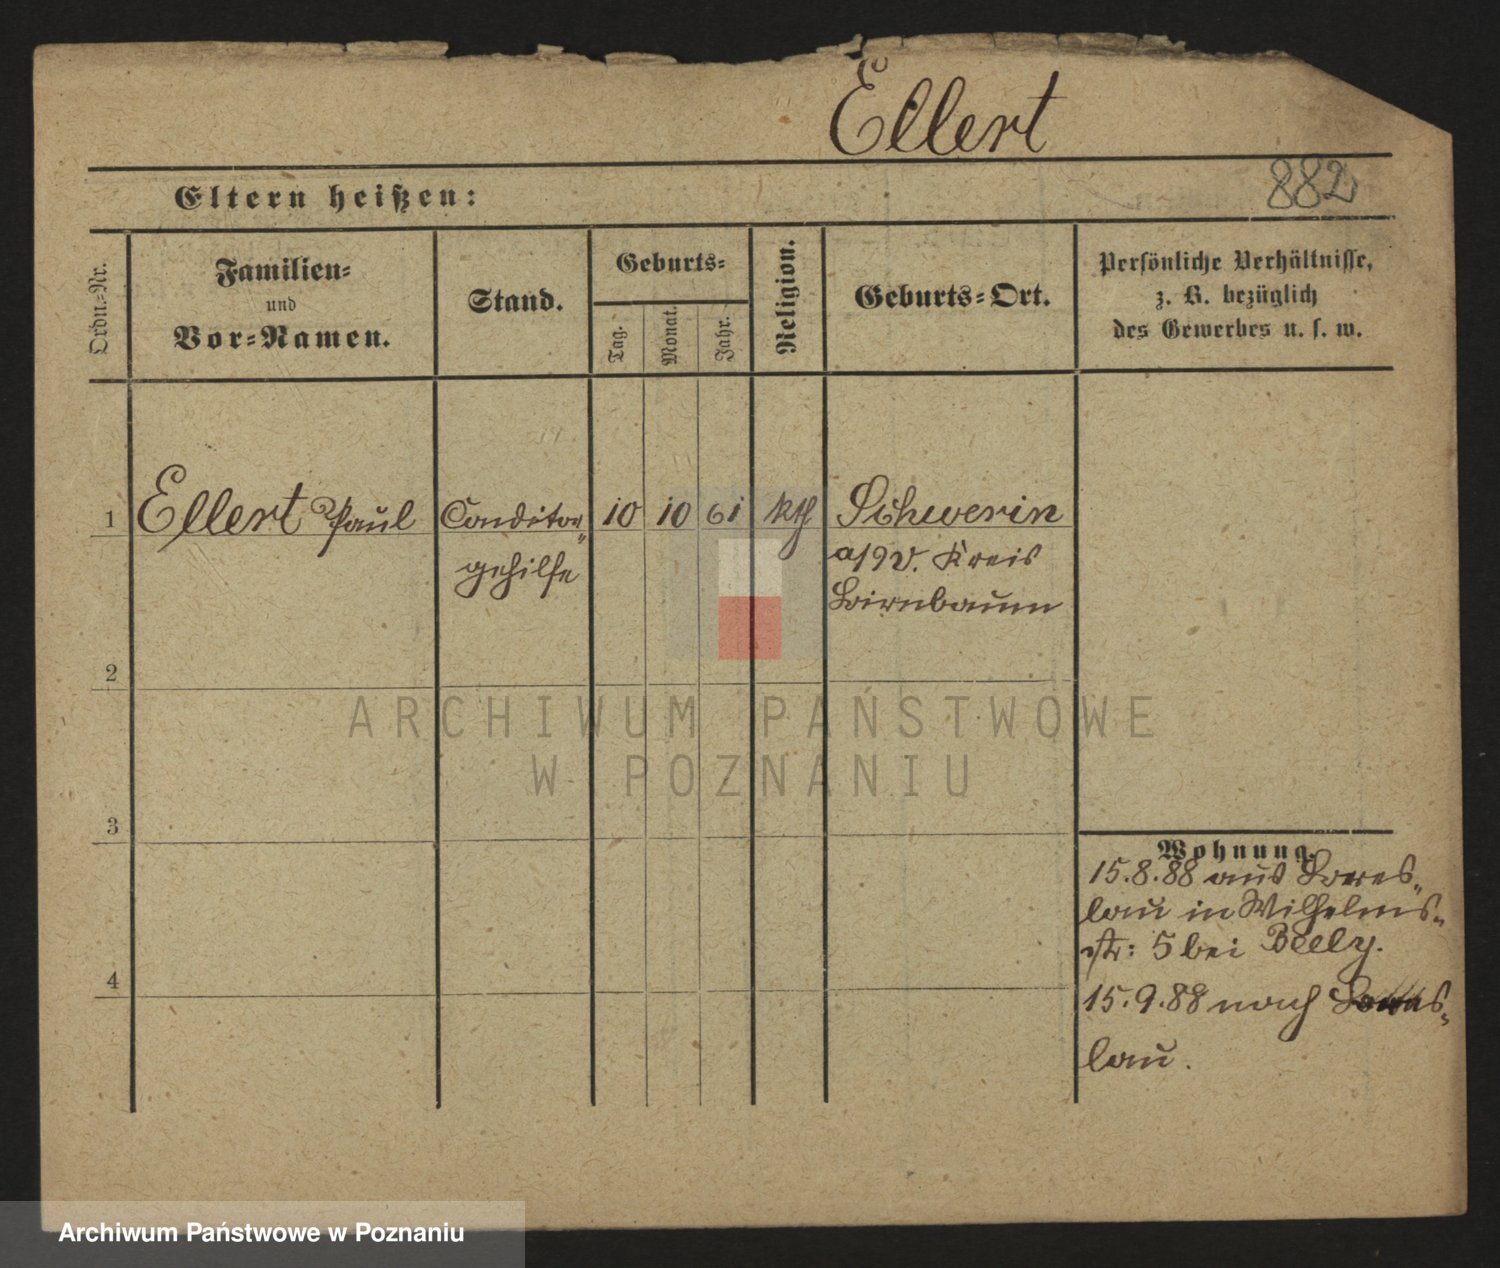 Ellert
882
Eltern heißen:
Ordn.-Nr.
Familien-
und
Vor-Namen.
Stand.
Geburts-
Tag.
Monat.
Jahr.
Religion.
Geburts-Ort.
Persönliche Verhältnisse,
z. B. bezüglich
des Gewerbes u. s. w.
1 Ellert Paul Conditor- 10 10 61 kth Schwerin
gehilfe a/W. Kreis
Birnbaum
2
3
4
Wohnung.
15.8.88 aus Bres-
lau in Wilhelms-
str: 5 bei Beely.
15.9.88 nach Bres-
lau.
ARCHIWUM PAŃSTWOWE
W POZNANIU
Archiwum Państwowe w Poznaniu